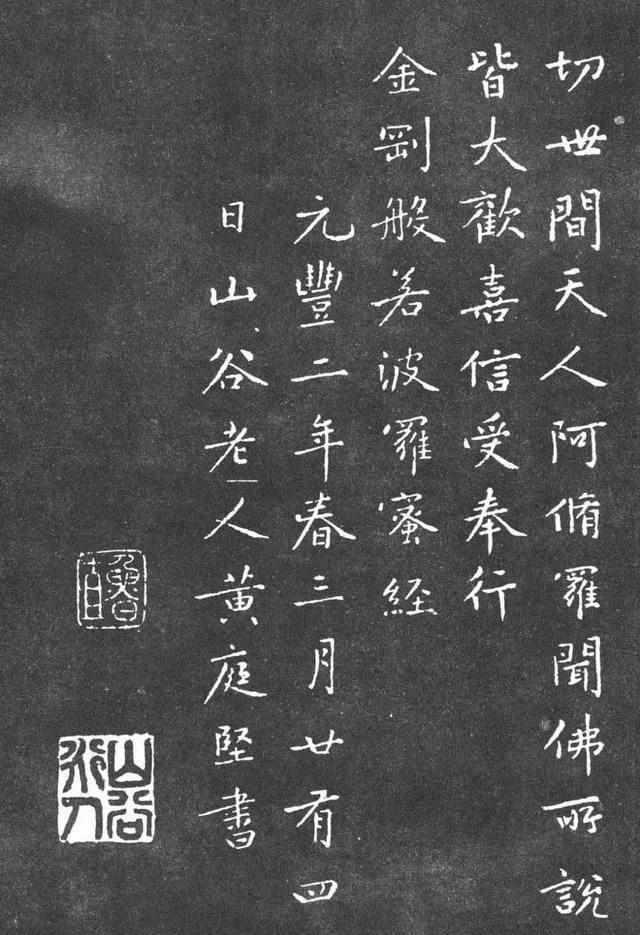 切世間天人阿脩羅聞佛所說
皆大歡喜信受奉行
金剛般若波羅蜜經
元豐二年春三月廿有四
日山谷老人黃庭堅書
山谷